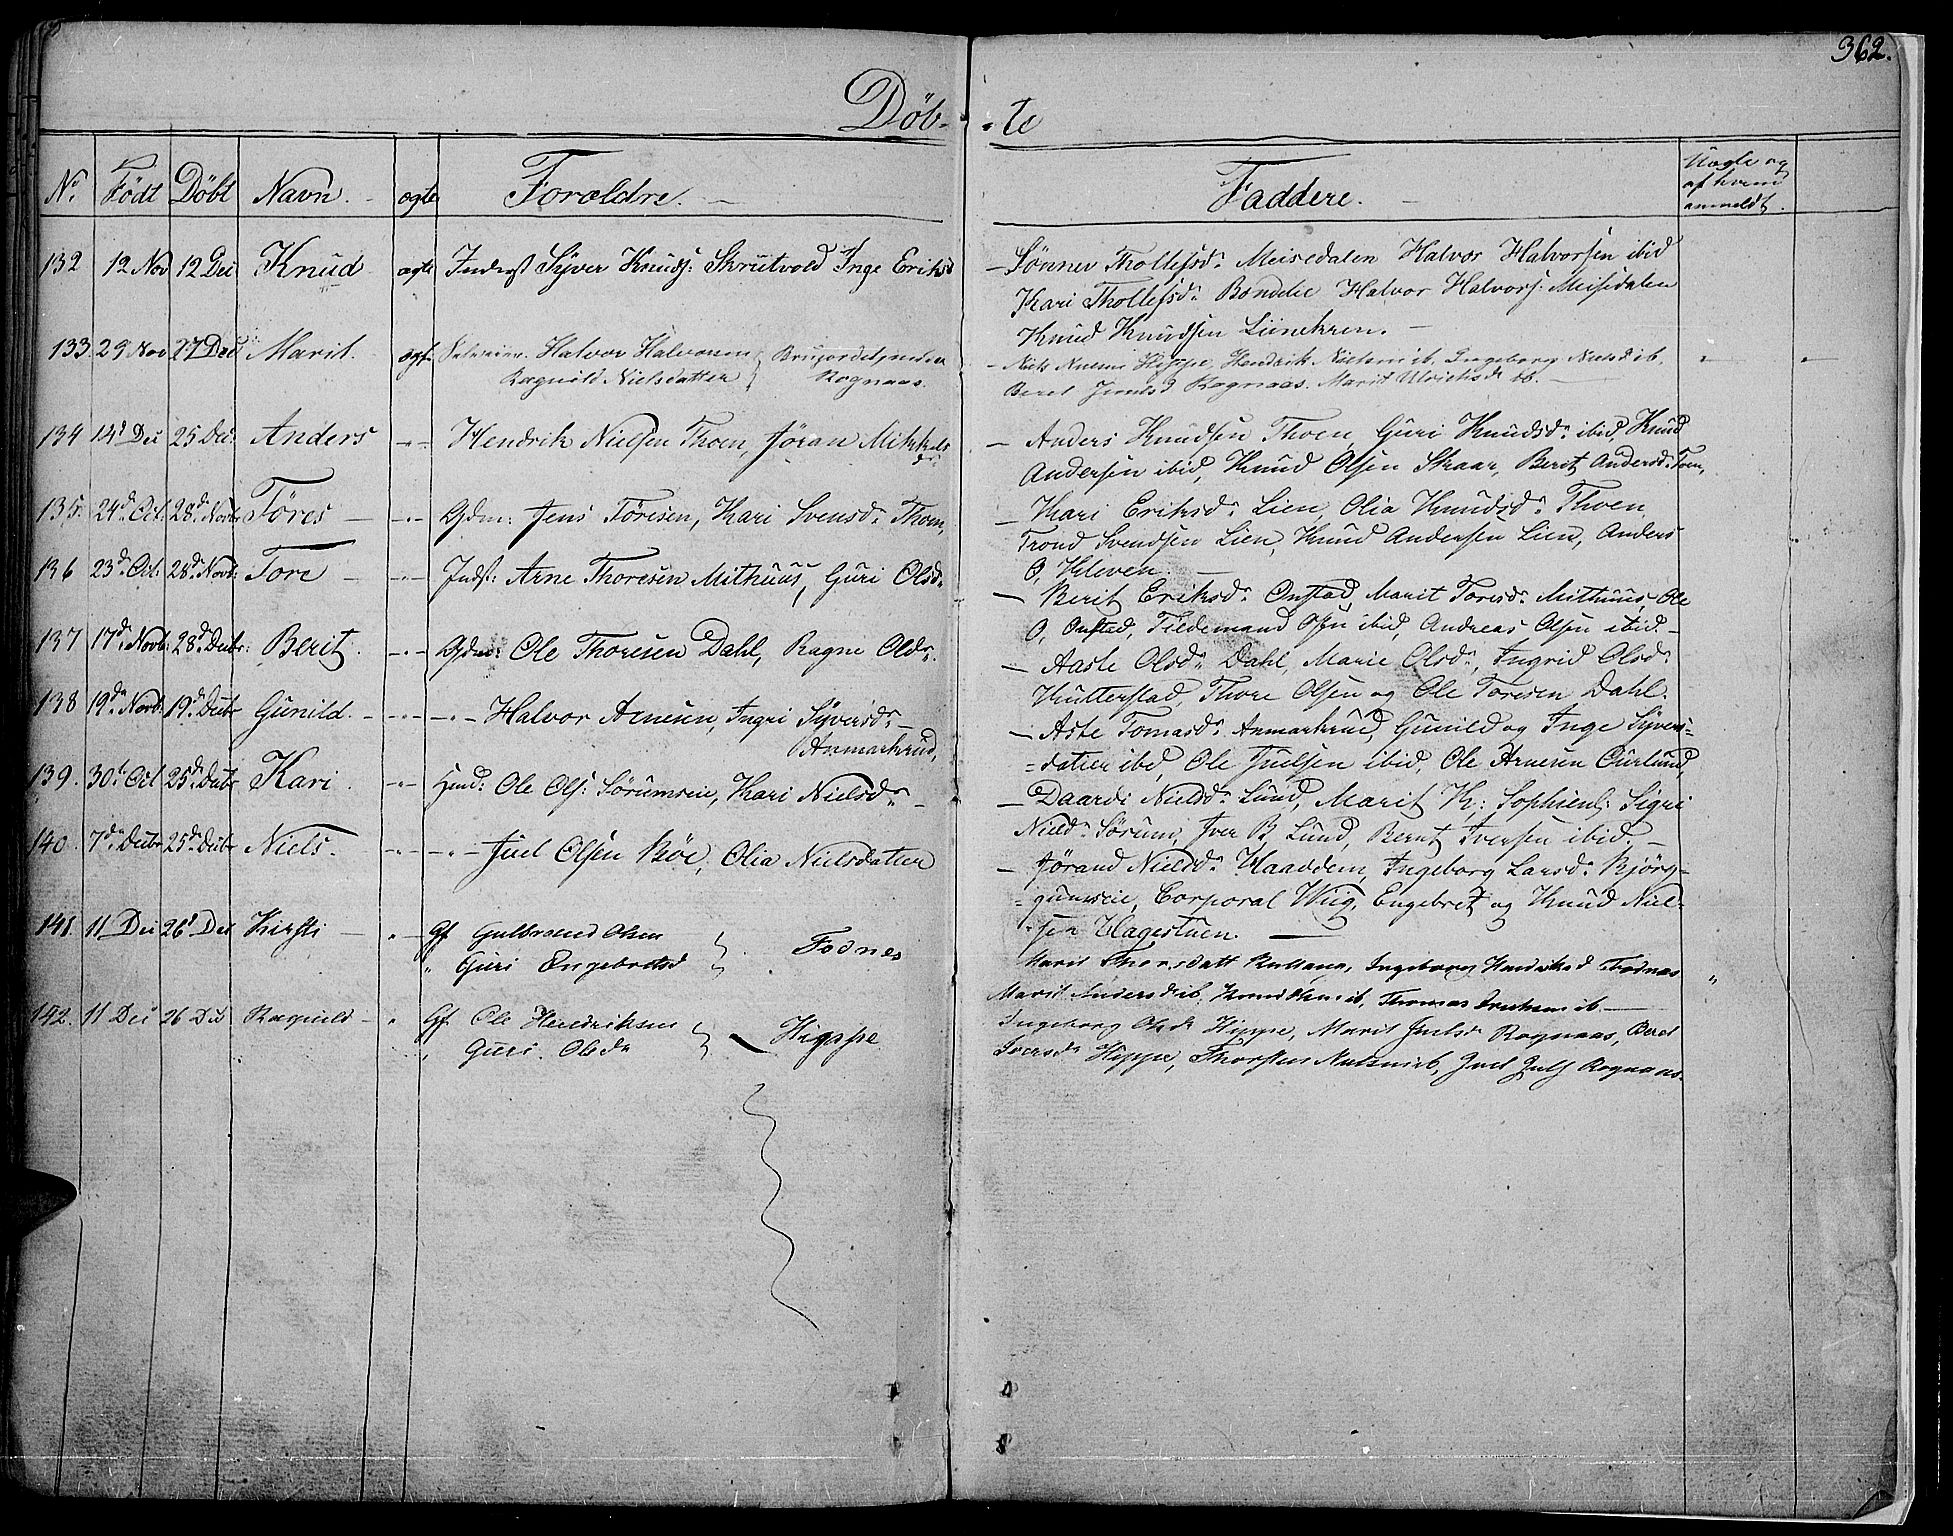 362.
Döb- -te
No Födt Döbt Navn. ægte Forældre. Faddere. Uægte og
af hvem
anmeldt.
132 12 Nov 12 Dec Knud ægte Inderst Syver Knuds: Skrutvold Inge Eriksd
Sønnev Thollefsdr Meisedalen Halvor Halvorsen ibid
Kari Thollefsdr Bondelie Halvor Halvors: Meisedalen
Knud Knudsen Linekren.
133. 29 Nov 27 Dec Marit. ægte Halvor Halvorsen
Ragnild Nielsdatter Rognaas.
Hippe, Hendrik Nielsen ib. Ingeborg Nielsd ib.
Beret Juulsd Rognaas. Marit Ulrichsd ib.
134 14d Dec 25 Dec. Anders -"- Hendrik Nielsen Thoen, Jøran Mikkels
dr
Anders Knudsen Thoen, Guri Knudsdr ibid, Knud
Andersen ibid, Knud Olsen Skaar, Berit Andersdr Toen,
135. 24de Oct. 28de Novbr Töres -"- Gdm: Jens Töresen, Kari Svensdr Thoen,
Kari Eriksdr Lien, Olia Knudsdr Thoen,
Trond Svendsen Lien, Knud Andersen Lien, Anders
O, Kleven.
136 23de Oct. 28de Novb: Tore -"- Indst: Arne Thoresen Mithuus, Guri Olsdr
Berit Eriksdr Onstad Marit Toresdr Mithuus, Ole
O, Onstad, Tiedemand Olsen ibid, Andreas Olsen ibid.
137 17de Novb: 28de Decbr: Berit. -"- Gdm: Ole Thoresen Dahl, Ragne Oldr.
Aaste Olsdr Dahl, Marie Olsdr, Ingrid Olsdr
Kutterstad, Thore Olsen og Ole Toresen Dahl.
138 19de Novb. 19de Decbr Gunild. -"- -"- Halvor Arnesen, Ingri Syversdr
Anmarkrud,
Aste Tomasdr Anmarkrud, Gunild og Inge Syvers=
=datter ibid, Ole Juelsen ibid, Ole Arnesen Curlund,
139. 30d Oct 25de Decbr Kari. -"- Huusd: Ole Ols: Sörumseie, Kari Nielsdr
Daardi Nielsdr Lund, Marit K: Sophiens: Sigri
Nieldr Sörum, Iver B, Lund, Bernt Iversen ibid.
140. 7de Decbr 25de Decbr Niels. -"- -"- Juel Olsen Böe, Olia Nielsdatter
Jörand Nieldr Haaddem, Ingeborg Larsdr Björg=
=gumseie, Corporal Wiig, Engebret og Knud Niel=
=sen Hagestuen.
141. 11 Dec 26d Dec Kirsti " Gf Gulbrand Olsen
" Guri Engebretsd Fodnes
Marit Thorsdatt Ingeborg Hendriksd Fodnes
Marit Andersd ib. Knud Olsen ib, Thomas Erichsen ib
142. 11 Dec 26 Dec Ragnild " Gf Ole Hendriksen
" Guri Olsdr Hippe
Ingeborg Olsdr Hippe, Marit Juelsdr Rognaas, Beret
Iversdr Hippe, Thorsten Nielsen ib, Juel Juls Rognaas.